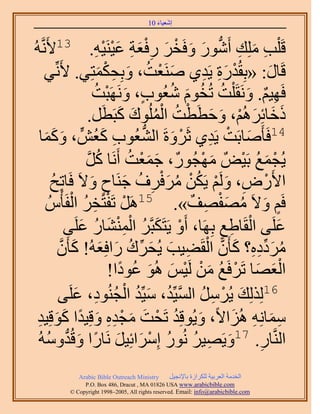 إشعياء 10
قَلْبِ مَلِكِ أَشُّورَ وَفَخْرَ رِفْعَةِ عَيْنَيْهِ. 13لأَنَّهُ
قَالَ: «بِقُدْرَةِ يَدِي صَنَعْتُ، وَبِحِكْمَتِي. لأَنِّي
فَهِيمٌ. وَنَقَلْتُ تُخُومَ شُعُوبٍ، وَنَهَبْتُ
ذَخَائِرَهُمْ، وَحَطَطْتُ الْمُلُوكَ كَبَطَل.
14فَأَصَابَتْ يَدِي ثَرْوَةَ الشُّعُوبِ كَعُشٍّ، وَكَمَا
يُجْمَعُ بَيْضٌ مَهْجُورٌ، جَمَعْتُ أَنَا كُلَّ
الأَرْضِ، وَلَمْ يَكُنْ مُرَفْرِفُ جَنَاحٍ وَلاَ فَاتِحُ
فَمٍ وَلاَ مُصَفْصِفٌ». 15هَلْ تَفْتَخِرُ الْفَأْسُ
عَلَى الْقَاطِعِ بِهَا، أَوْ يَتَكَبَّرُ الْمِنْشَارُ عَلَى
مُرَدِّدِهِ؟ كَأَنَّ الْقَضِيبَ يُحَرِّكُ رَافِعَهُ! كَأَنَّ
الْعَصَا تَرْفَعُ مَنْ لَيْسَ هُوَ عُودًا!
16لِذلِكَ يُرْسِلُ السَّيِّدُ، سَيِّدُ الْجُنُودِ، عَلَى
سِمَانِهِ هُزَالاً، وَيُوقِدُ تَحْتَ مَجْدِهِ وَقِيدًا كَوَقِيدِ
النَّارِ. 17وَيَصِيرُ نُورُ إِسْرَائِيلَ نَارًا وَقُدُّوسُهُ
Arabic Bible Outreach Ministry الخدمة العربية للكرازة بالإنجيل
P.O. Box 486, Dracut , MA 01826 USA www.arabicbible.com
© Copyright 1998-2005, All rights reserved. Email: info@arabicbible.com